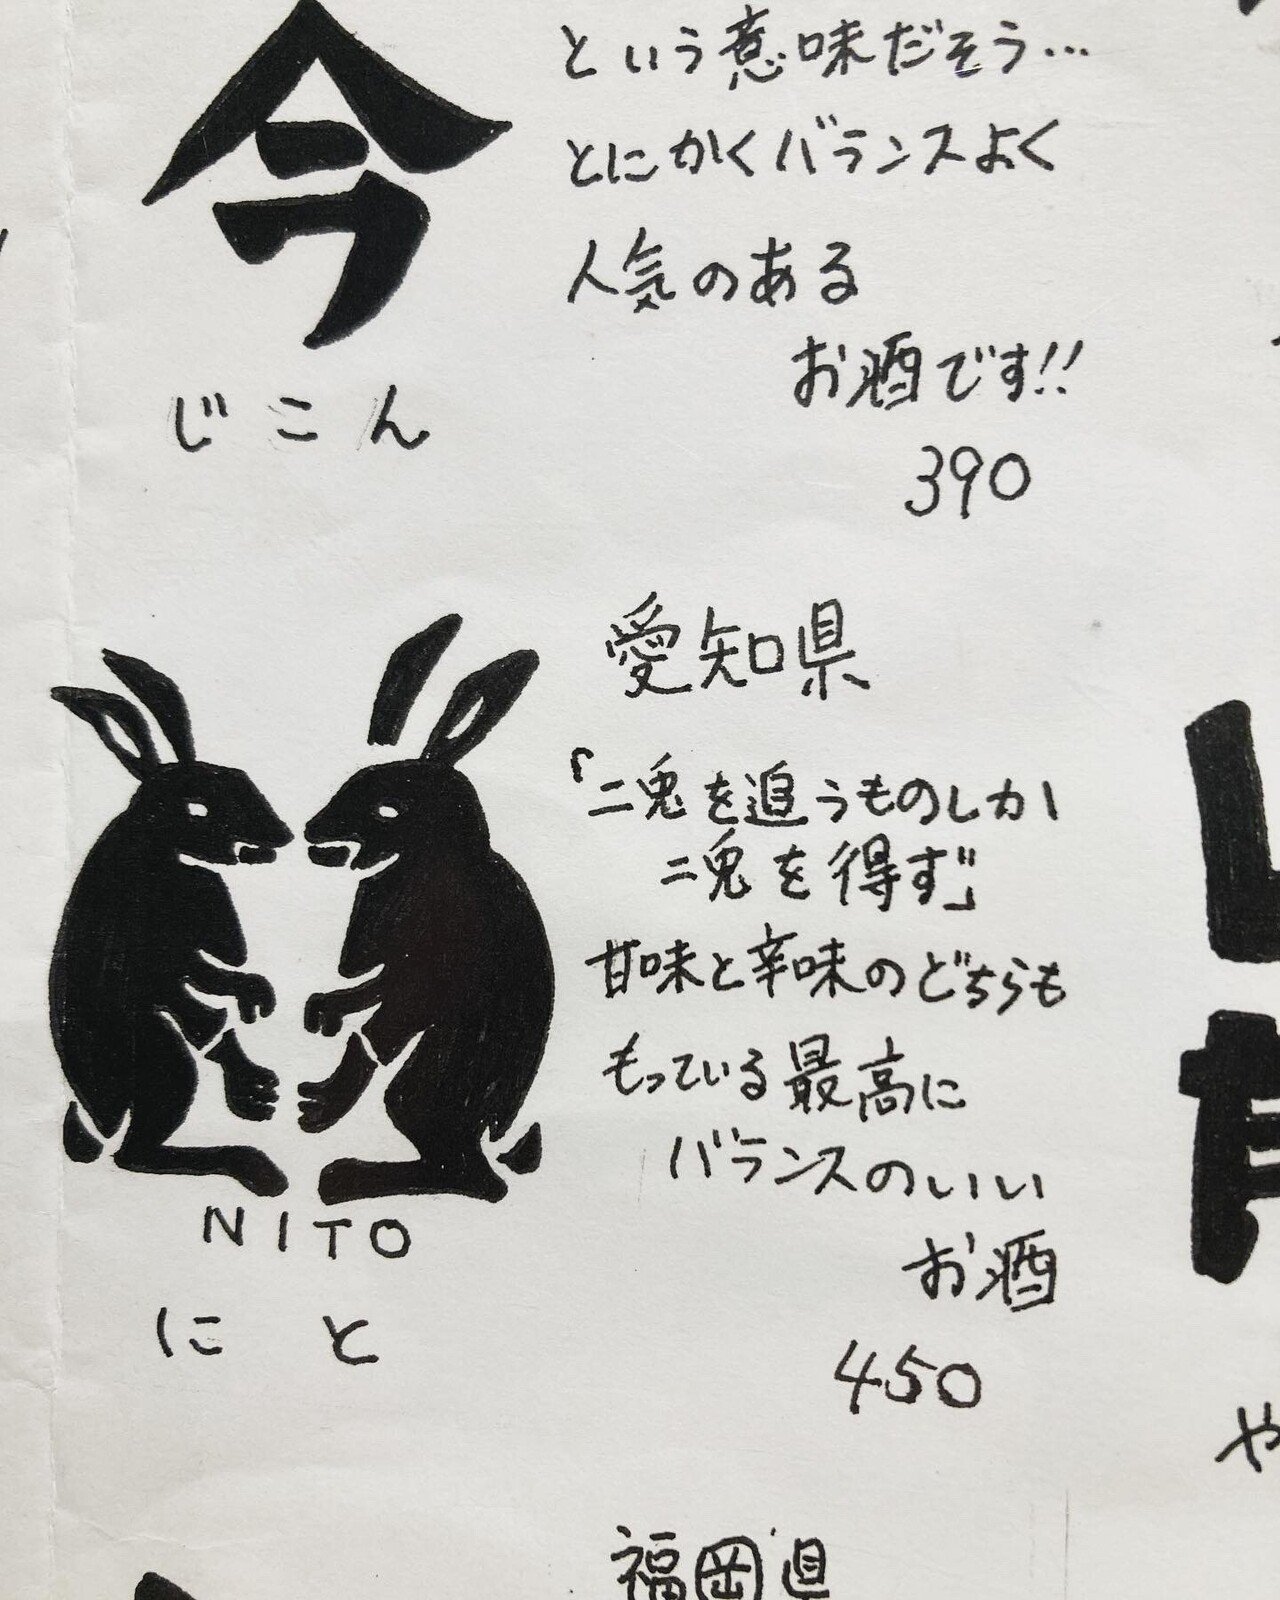 今
じこん
という意味だそう…
とにかくバランスよく
人気のある
お酒です!!
390
NITO
にと
愛知県
「二兎を追うものしか
二兎を得ず」
甘味と辛味のどちらも
もっている最高に
バランスのいい
お酒
450
福岡県
や